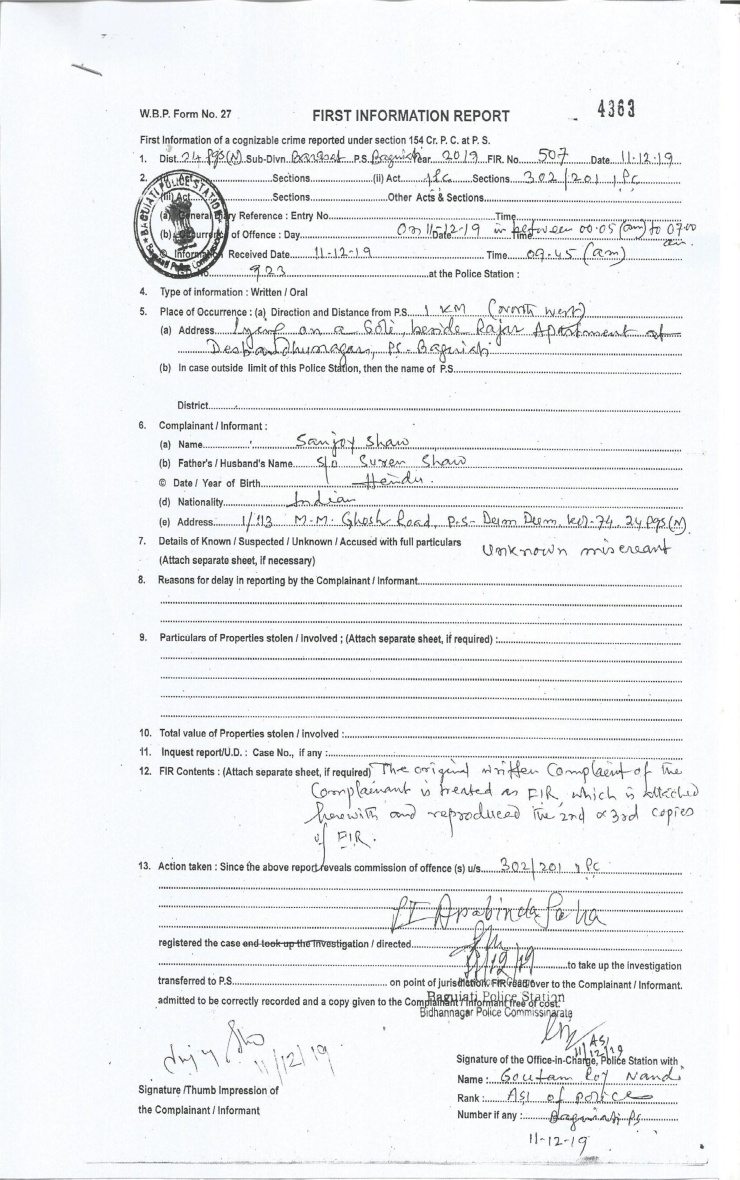 4363
W.B.P. Form No. 27
FIRST INFORMATION REPORT
First Information of a cognizable crime reported under section 154 Cr. P. C. at P. S.
1. Dist. 24 Pgs(N) Sub-Divn. Barasat P.S. Baguiati Year 2019 FIR. No. 507 Date 11-12-19
2. (i) Act Sections (ii) Act IPC Sections 302/201 IPC
(iii) Act Sections Other Acts & Sections
(a) General Diary Reference : Entry No. Time
(b) Occurrence of Offence : Day On 11-12-19 Date in between Time 00.05 (am) to 07.00 am.
© Information Received Date 11-12-19 Time 09.45 (am)
No. 923 at the Police Station :
BAGUIATI POLICE STATION
4. Type of information : Written / Oral
5. Place of Occurrence : (a) Direction and Distance from P.S. 1 KM (North West)
(a) Address Lying on a Goli, beside Rajar Apartment at
Desbandhunagar, PS- Baguiati
(b) In case outside limit of this Police Station, then the name of P.S.
District
6. Complainant / Informant :
(a) Name Sanjoy Shaw
(b) Father's / Husband's Name S/O Suren Shaw
© Date / Year of Birth Hindu.
(d) Nationality Indian
(e) Address 1/113 M.M. Ghosh Road, P.S- Dum Dum, Kol-74, 24 Pgs(N)
7. Details of Known / Suspected / Unknown / Accused with full particulars Unknown miscreant
(Attach separate sheet, if necessary)
8. Reasons for delay in reporting by the Complainant / Informant
9. Particulars of Properties stolen / Involved ; (Attach separate sheet, if required) :
10. Total value of Properties stolen / involved :
11. Inquest report/U.D. : Case No., if any :
12. FIR Contents : (Attach separate sheet, if required) The original written Complaint of the
Complainant is treated as FIR, which is attached
herewith and reproduced the 2nd & 3rd copies
of FIR.
13. Action taken : Since the above report reveals commission of offence (s) u/s. 302/201 IPC
SI Arabinda Saha
registered the case end took up the investigation / directed
11/12/19 to take up the investigation
transferred to P.S. on point of jurisdiction. FIR read over to the Complainant / Informant.
admitted to be correctly recorded and a copy given to the Complainant / Informant free of cost.
Baguiati Police Station
Bidhannagar Police Commissinarate
11/12/19
ASI
11/12/19
Signature of the Office-in-Charge, Police Station with
Name : Goutam Roy Nandi
Rank : ASI of police
Number if any : Baguiati PS
11-12-19
Signature /Thumb Impression of
the Complainant / Informant